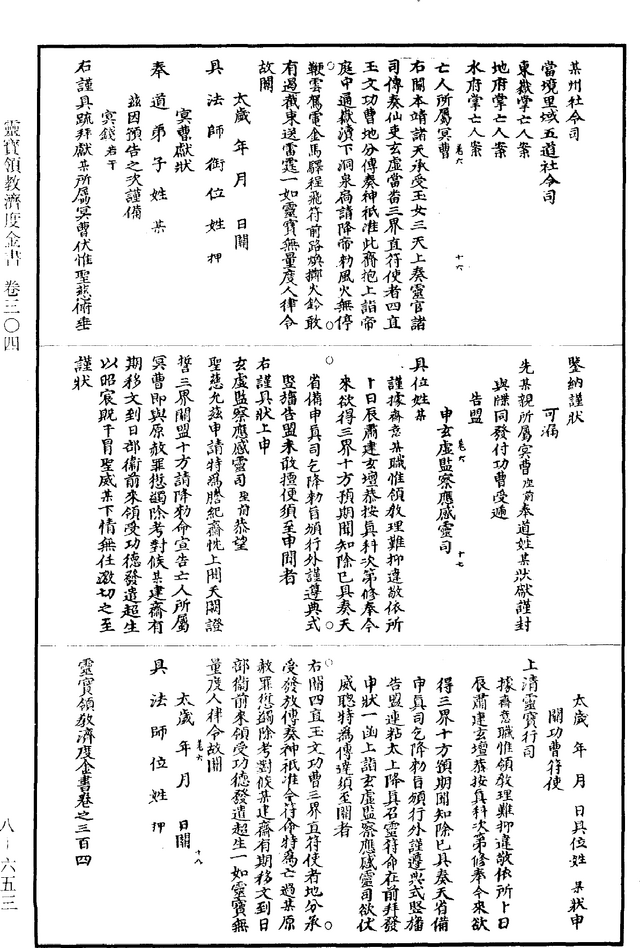 某州社令司
當境里域五道社令司
東嶽掌亡人案
地府掌亡人案
水府掌亡人案
亡人所屬冥曹
卷六 十六
右關本靖諸天承受玉女三天上奏靈官諸
司傳奏仙吏玄虛當番三界直符使者四直
玉文功曹地分傳奏神祇准此齋抱上詣帝
庭中通嶽瀆下洞泉扃請降帝勑風火無停
鞭雲駕電金馬驛程飛符前路煥擲火鈴敢
有過截束送雷霆一如靈寶無量度人律令
故關
太歲 年 月 日關
具 法 師 銜 位 姓 押
冥曹獻狀
奉 道 弟 子 姓 某
茲因預告之次謹備
冥錢若干
右謹具疏拜獻某所屬冥曹伏惟聖慈俯垂
鑒納謹狀
可漏
先某親所屬冥曹座前奉道姓某狀獻謹封
與牒同發付功曹受遞
告盟
申玄虛監察應感靈司
卷六 十七
具位姓某
謹據齋意某職惟領教理難抑違敬依所
卜日辰肅建玄壇恭按真科次第修奉今
來欲得三界十方預期聞知除已具奏天
省備申真司乞降勑旨頒行外謹遵典式
豎旛告盟未敢擅便須至申聞者
右謹具狀上申
玄虛監察應感靈司聖前恭望
聖慈允茲申請特為謄紀齋悃上聞天闕證
誓三界關盟十方請降勑命宣告亡人所屬
冥曹即與原赦罪愆蠲除考對候某建齋有
期移文到日部衛前來領受功德發遣超生
以昭宸貺干冒聖威某下情無任激切之至
謹狀
太歲 年 月 日具位姓 某狀申
關功曹符使
上清靈寶行司
據齋意職惟領教理難抑違敬依所卜日
辰肅建玄壇恭按真科次第修奉今來欲
得三界十方預期聞知除已具奏天省備
申真司乞降勑旨頒行外謹遵典式豎旛
告盟連粘太上降真召靈符命在前拜發
申狀一函上詣玄虛監察應感靈司欲伏
威聰特為傳達須至關者
右關四直玉文功曹三界直符使者地分承
受發放傳奏神祇准全符命特為亡過某原
赦罪愆蠲除考對候某建齋有期移文到日
部衛前來領受功德發遣超生一如靈寶無
量度人律令故關
卷六 十八
太歲 年 月 日關
具 法 師 位 姓 押
靈寶領教濟度金書卷之三百四
靈寶領教濟度金書 卷三〇四
八-六五三